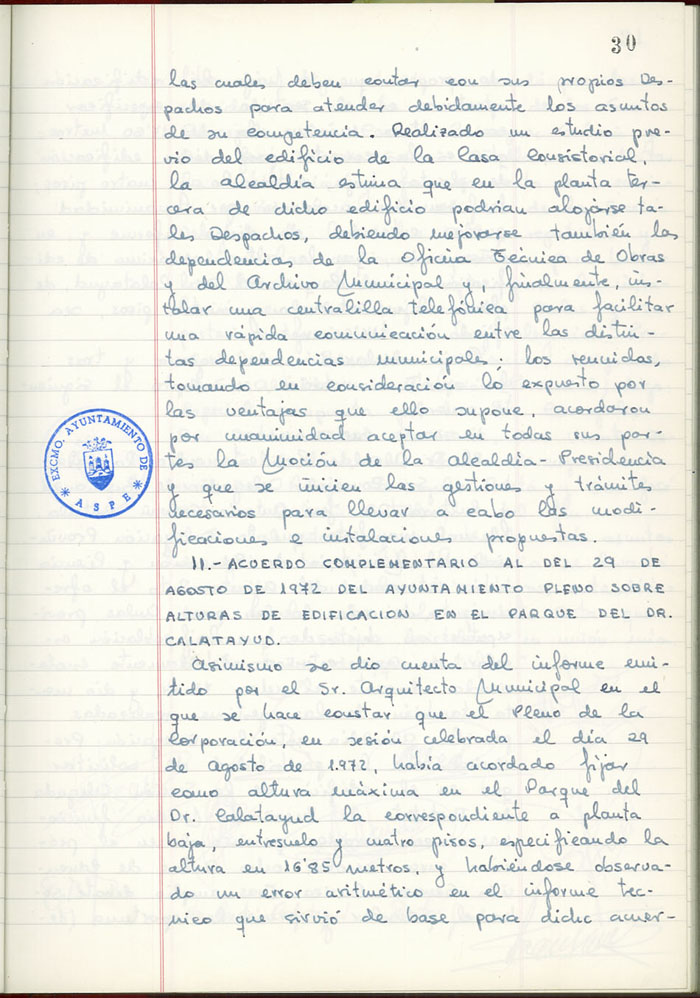 30
las cuales deben contar con sus propios Des-
pachos para atender debidamente los asuntos
de su competencia. Realizado un estudio pre-
vio del edificio de la Casa Consistorial,
la Alcaldía estima que en la planta ter-
cera de dicho edificio podrían alojarse ta-
les Despachos, debiendo mejorarse también las
dependencias de la Oficina Técnica de Obras
y del Archivo Municipal y, finalmente, ins-
talar una centralilla telefónica para facilitar
una rápida comunicación entre las distin-
tas dependencias municipales; los reunidos,
tomando en consideración lo expuesto por
las ventajas que ello supone, acordaron
por unanimidad aceptar en todas sus par-
tes la Moción de la Alcaldía-Presidencia
y que se inicien las gestiones y trámites
necesarios para llevar a cabo las modi-
ficaciones e instalaciones propuestas.
EXCMO. AYUNTAMIENTO DE
* ASPE *
11.- ACUERDO COMPLEMENTARIO AL DEL 29 DE
AGOSTO DE 1972 DEL AYUNTAMIENTO PLENO SOBRE
ALTURAS DE EDIFICACION EN EL PARQUE DEL DR.
CALATAYUD.
Asimismo se dio cuenta del informe emi-
tido por el Sr. Arquitecto Municipal en el
que se hace constar que el Pleno de la
Corporación, en sesión celebrada el día 29
de Agosto de 1.972, había acordado fijar
como altura máxima en el Parque del
Dr. Calatayud la correspondiente a planta
baja, entresuelo y cuatro pisos, especificando la
altura en 16'85 metros, y habiéndose observa-
do un error aritmético en el informe tec-
nico que sirvió de base para dicho acuer-